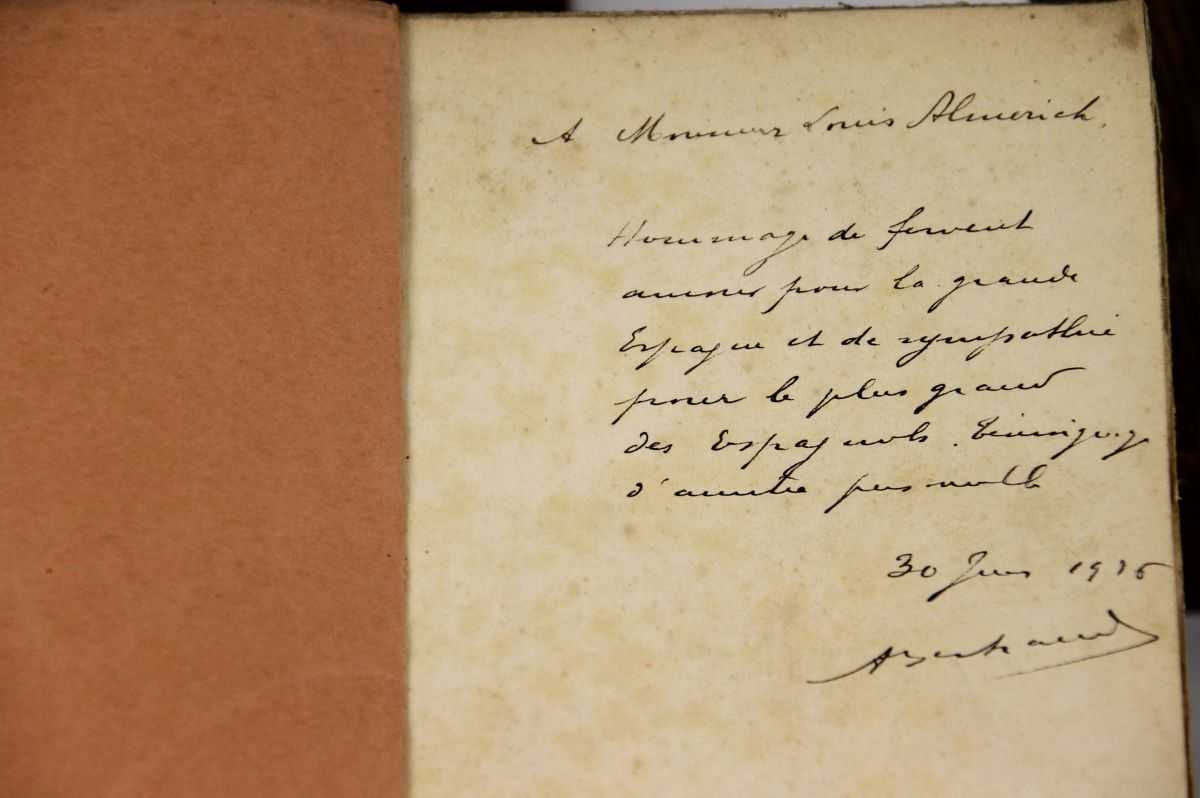 A Monsieur Louis Almerich,
Hommage de fervent
amour pour la grande
Espagne et de sympathie
pour le plus grand
des Espagnols. Témoignage
d'amitié personnelle
30 Juin